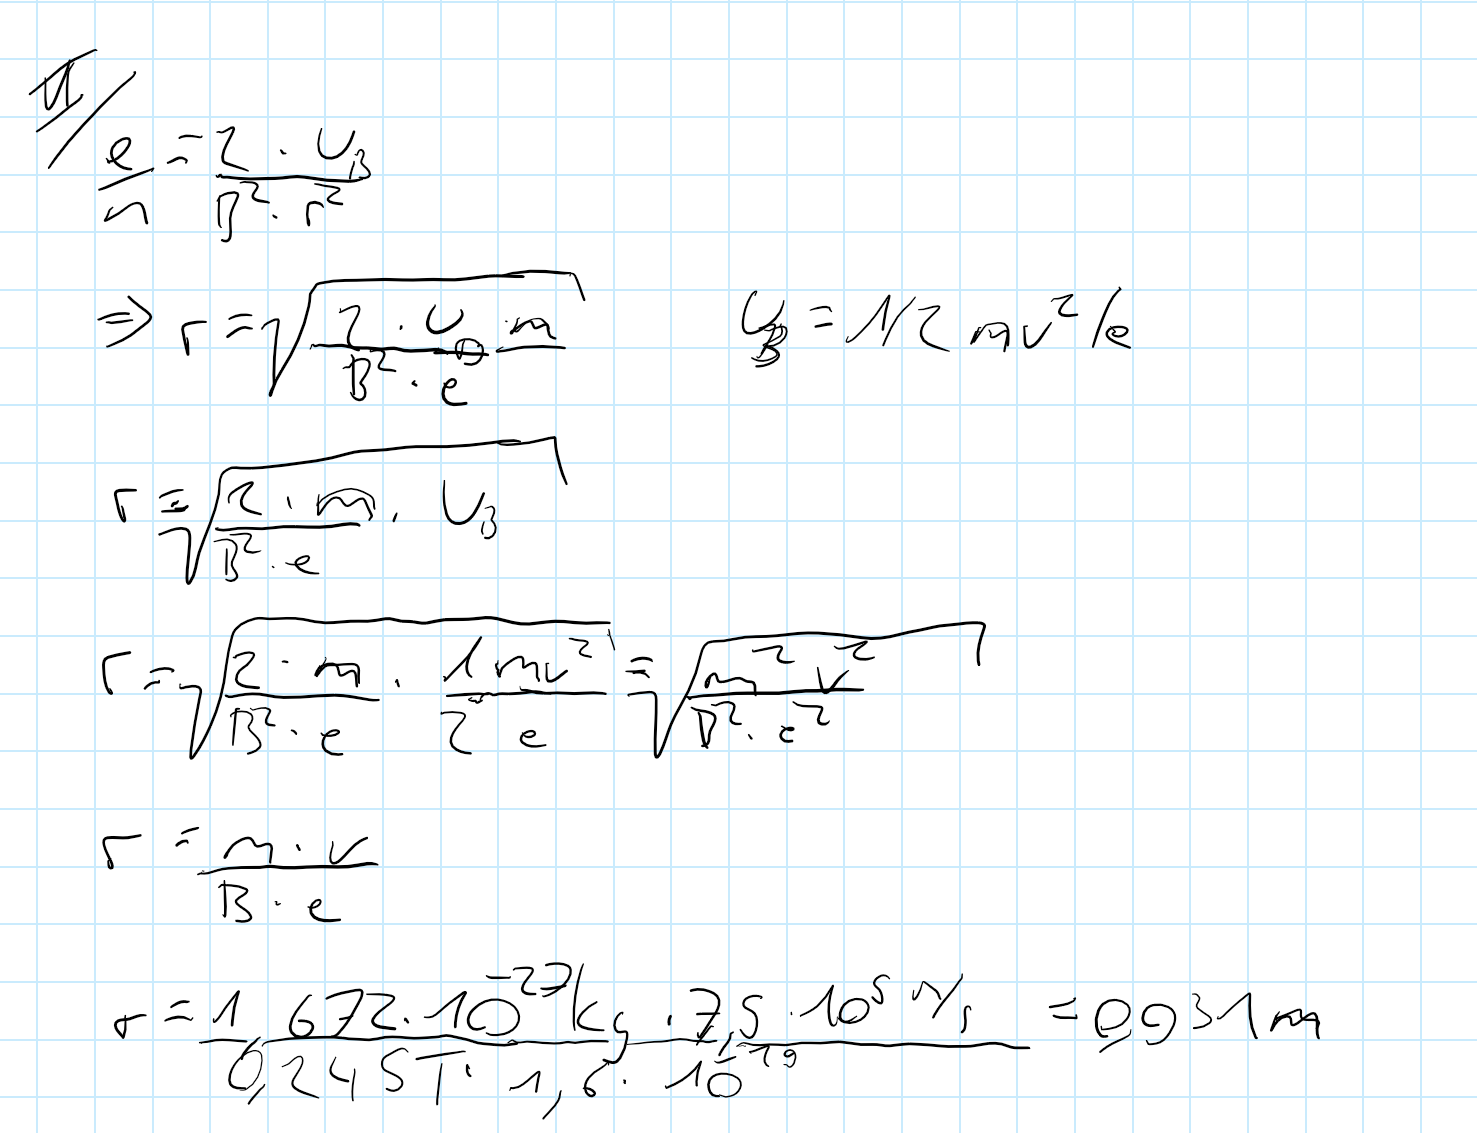 e/m = 2 · U_B / B² · r²
⇒ r = √(2 · U_B · m / B² · e)    U_B = 1/2 mv²/e
r = √(2 · m / B² · e · U_B)
r = √(2 · m / B² · e · 1 mv² / 2 e) = √(m² v² / B² · e²)
r = m · v / B · e
r = 1,672 · 10⁻²⁷ kg · 7,5 · 10⁵ m/s / 0,245 T · 1,6 · 10⁻¹⁹ = 0,031 m